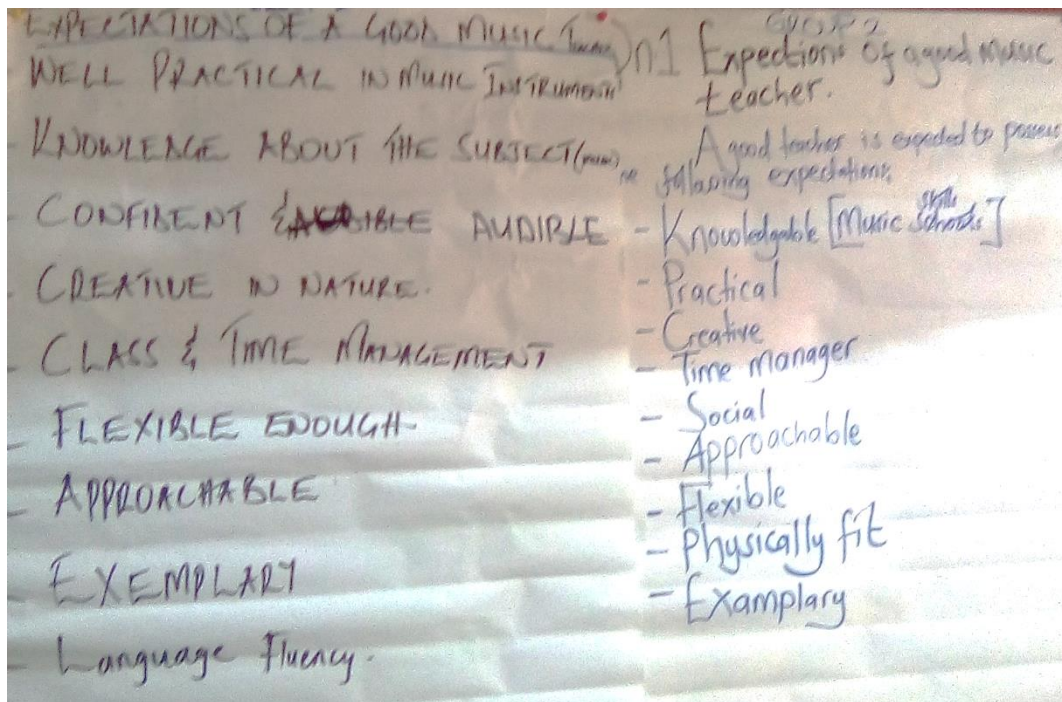 EXPECTATIONS OF A GOOD MUSIC
- WELL PRACTICAL IN MUSIC INSTRUMENT
- KNOWLEDGE ABOUT THE SUBJECT (music)
- CONFIDENT & AUDIBLE
- CREATIVE IN NATURE.
- CLASS & TIME MANAGEMENT
- FLEXIBLE ENOUGH.
- APPROACHABLE
- EXEMPLARY
- Language Fluency.
GROUP 2
n1 Expections of a good music
teacher.
A good teacher is expected to possess
following expectations
- Knowledgable [Music skills]
- Practical
- Creative
- Time manager
- Social
- Approachable
- Flexible
- Physically fit
- Examplary